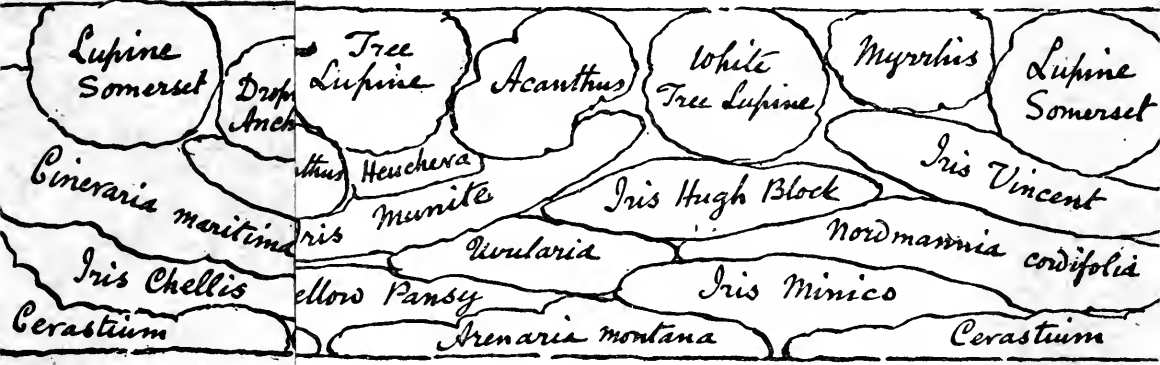 Lupine
Somerset
Drop
Anch
Tree
Lupine
Acanthus
White
Tree Lupine
Myrrhis
Lupine
Somerset
Cineraria maritima
thus
Heuchera
Iris Vincent
ris Munite
Iris Hugh Block
Nordmannia cordifolia
Uvularia
Iris Chellis
ellow Pansy
Iris Minico
Cerastium
Arenaria montana
Cerastium